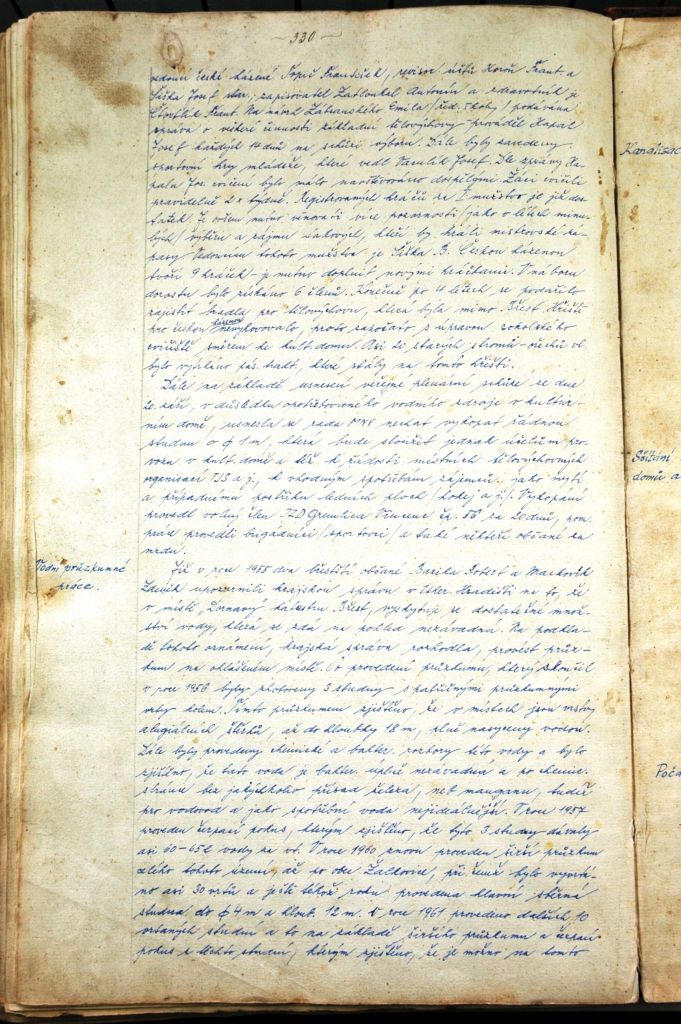 - 330 -
vedoucí české házené Popř František, revisor účtů Horň Frant. a
Liška Josef star., zapisovatel Zatloukal Antonín a zdravotník je
Frant. Na návrh Zátranského Emila /řed. školy/ podávána
zpráva o veškeré činnosti základní tělovýchovy prováděl Hapal
Josef každých 14 dnů na schůzi výboru. Dále byly zavedeny
sportovní hry mládeže, které vedl Josef. Dle zprávy Ha-
pala Jos. cvičení bylo málo navštěvováno dospělými. Žáci cvičili
pravidelně 2x týdně. Registrovaných hráčů za I. mužstvo je již dos-
tatek. Je ovšem nutno věnovati více pozornosti /jako v létech minu-
lých/ výběru a zájmu takových, kteří by hráli mistrovské zá-
pasy. Vedoucím tohoto mužstva je Liška B. Českou házenou
tvoří 9 hráček - je nutno doplnit novými hráčkami. V náboru
dorostu bylo získáno 6 členů. Konečně po 4 letech se podařilo
zajistit bradla pro tělovýchovu, která byla mimo Břest. Hřiště
pro českou házenou nevyhovovalo, proto započato s úpravou sokolského
cvičiště směrem ke kult. domu. Asi 20 starých stromů - ořechů vl.
bylo vykáceno, které stály na tomto hřišti.
Dále na základě usnesení veřejné plenární schůze ze dne
20. září, v důsledku opotřebovaného vodního zdroje v kultur-
ním domě, usnesla se rada MNV nechat vykopat řádnou
studnu o φ 1 m, která bude sloužit jednak účelům pro-
vozu v kult. domě a též k žádosti místních tělovýchovných
organisací TJS a j., k vhodným spotřebám zájemců, jako mytí
a případnému postřiku ledních ploch /hokej a j./. Vykopání
provedl volný člen JZD Gremlica Vincenc čp. 56 za 20 dnů, pom.
práce provedli brigádníci /sportovci/, a také někteří občané za
mzdu.
Vodní průzkumné
práce.
Již v roce 1955 dva břestští občané Bařika Robert a Machovík
Zdeněk upozornili krajskou správu v Uher. Hradišti na to, že
v místě „Dornavy" katastru Břest, vyskytuje se dostatečné množ-
ství vody, která se zdá na pohled nezávadná. Na podkla-
dě tohoto oznámení, krajská správa rozhodla, provést průz-
kum na ohlášeném místě. Po provedení průzkumu, který skončil
v roce 1956 byly zhotoveny 3 studny s patřičnými průzkumnými
vrty kolem. Tímto průzkumem zjištěno, že v místech jsou vrstvy
alugiálních štěrků, až do hloubky 18 m, plně nasycený vodou.
Dále byly provedeny chemické a bakter. rozbory této vody a bylo
zjištěno, že tato voda je bakter. úplně nezávadná a po chemic.
stránce bez jakýchkoliv přísad železa, neb manganu, tudíž
pro vodovod a jako spotřební voda nejideálnější. V roce 1957
proveden čerpací pokus, kterým zjištěno, že tyto 3 studny dávaly
asi 60-65 l vody za vt. V roce 1960 znovu proveden širší průzkum
celého tohoto území, až po obec Žalkovice, při čemž bylo vyvrtá-
no asi 30 vrtů a ještě téhož roku provedena hlavní sběrná
studna do φ 4 m a hloub. 12 m. V roce 1961 provedeno dalších 10
vrtaných studní a to na základě širšího průzkumu a čerpací
pokus z těchto studní, kterým zjištěno, že je možno na tomto
Kanalisac
Sčítání
domů a
Poča